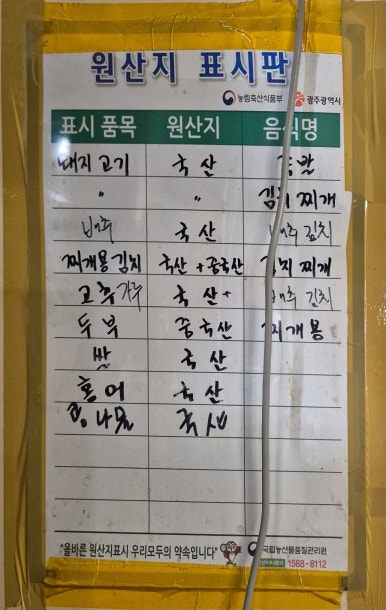 원산지 표시판
농림축산식품부 광주광역시
표시 품목 원산지 음식명
돼지고기 국산
" " 김치찌개
배추 국산 배추김치
찌개용김치 국산+중국산 김치찌개
고추가루 국산+ 배추김치
두부 중국산 찌개용
쌀 국산
홍어 국산
콩나물 국산
"올바른 원산지표시 우리모두의 약속입니다"
국립농산물품질관리원
1588-8112